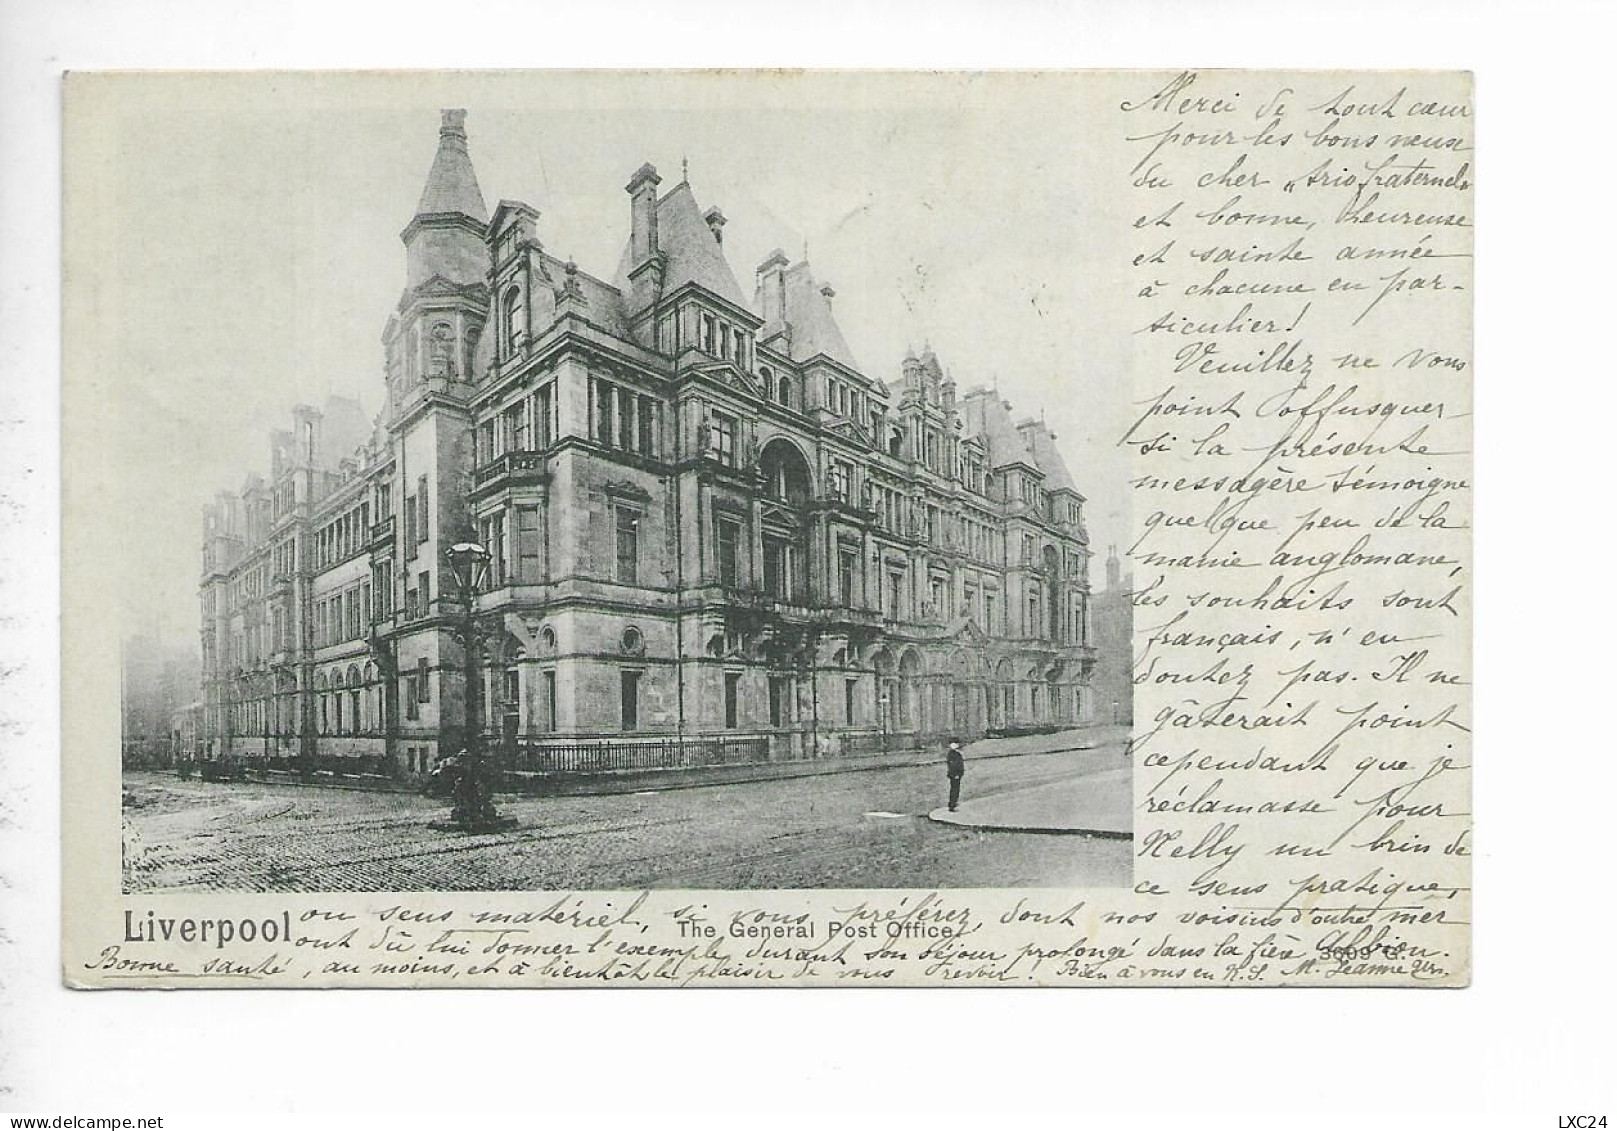 Merci de tout cœur
pour les bons vœux
du cher „trio fraternel„
et bonne, heureuse
et sainte année
à chacune en par-
ticulier!
Veuillez ne vous
point offusquer
si la présente
messagère témoigne
quelque peu de la
manie anglomane,
les souhaits sont
français, n'en
doutez pas. Il ne
gâterait point
cependant que je
réclamasse pour
Nelly un brin de
ce sens pratique,
ou sens matériel, si vous préférez, dont nos voisins d'outre mer
ont dû lui donner l'exemple durant son séjour prolongé dans la fière Albion.
Bonne santé, au moins, et à bientôt le plaisir de vous revoir! Bien à vous en N.S. M. Jeanne
Liverpool
The General Post Office.
3609 G.
LXC24